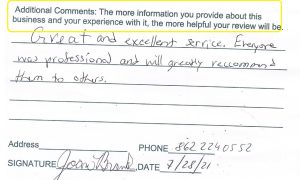 Additional Comments: The more information you provide about this
business and your experience with it, the more helpful your review will be.
Great and excellent service. Everyone
was professional and will greatly reccommend
them to others.
Address
PHONE 862 224 0552
SIGNATURE DATE 7/28/21